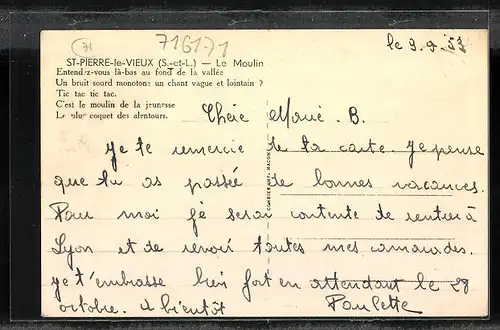 71
71G171
le 9.9.53
ST-PIERRE-le-VIEUX (S.-et-L.) — Le Moulin
Entendez-vous là-bas au fond de la vallée
Un bruit sourd monotone un chant vague et lointain ?
Tic tac tic tac.
C'est le moulin de la jeunesse
Le plus coquet des alentours.
Chère Marie. B.
Je te remercie de ta carte. Je pense
que tu as passée de bonnes vacances.
Pour moi je serai contente de rentrer à
Lyon et de revoir toutes mes camarades.
Je t'embrasse bien fort en attendant le 28
octobre. A bientôt Paulette
COMBIER IMP. MACON